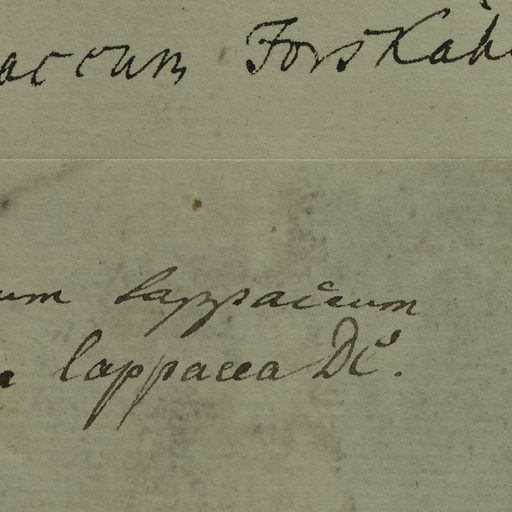 accum Forskåh
um lappaceum
a lappacea DC.